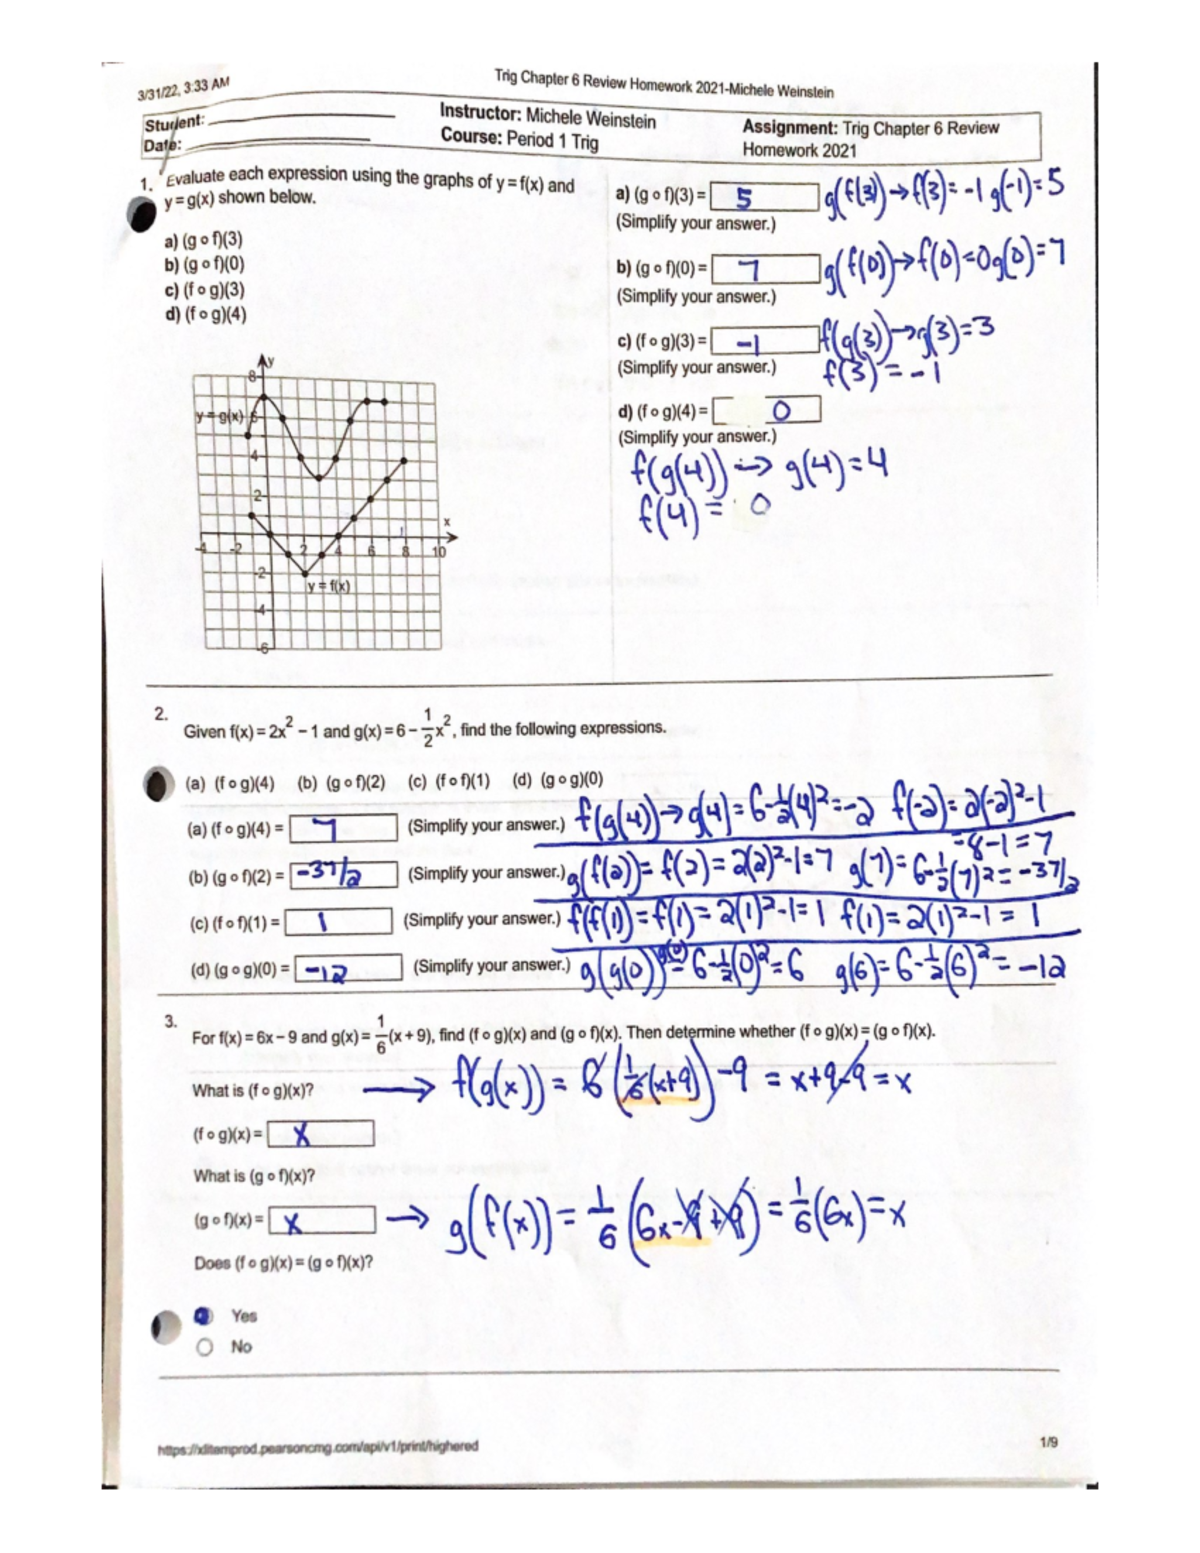 3/31/22, 3:33 AM
Trig Chapter 6 Review Homework 2021-Michele Weinstein
Student:
Date:
Instructor: Michele Weinstein
Course: Period 1 Trig
Assignment: Trig Chapter 6 Review
Homework 2021
1. Evaluate each expression using the graphs of y = f(x) and
y = g(x) shown below.
a) (g ∘ f)(3)
b) (g ∘ f)(0)
c) (f ∘ g)(3)
d) (f ∘ g)(4)
y
8
y = g(x) 6
4
2
x
-4 -2 2 4 6 8 10
-2
y = f(x)
-4
-6
a) (g ∘ f)(3) = 5 g(f(3)) → f(3) = -1 g(-1) = 5
(Simplify your answer.)
b) (g ∘ f)(0) = 7 g(f(0)) → f(0) = 0 g(0) = 7
(Simplify your answer.)
c) (f ∘ g)(3) = -1 f(g(3)) → g(3) = 3
(Simplify your answer.) f(3) = -1
d) (f ∘ g)(4) = 0
(Simplify your answer.)
f(g(4)) → g(4) = 4
f(4) = 0
2.
Given f(x) = 2x² - 1 and g(x) = 6 - 1/2 x², find the following expressions.
(a) (f ∘ g)(4) (b) (g ∘ f)(2) (c) (f ∘ f)(1) (d) (g ∘ g)(0)
(a) (f ∘ g)(4) = 7 (Simplify your answer.) f(g(4)) → g(4) = 6 - 1/2(4)² = -2 f(-2) = 2(-2)² - 1
= 8 - 1 = 7
(b) (g ∘ f)(2) = -37/2 (Simplify your answer.) g(f(2)) = f(2) = 2(2)² - 1 = 7 g(7) = 6 - 1/2(7)² = -37/2
(c) (f ∘ f)(1) = 1 (Simplify your answer.) f(f(1)) = f(1) = 2(1)² - 1 = 1 f(1) = 2(1)² - 1 = 1
(d) (g ∘ g)(0) = -12 (Simplify your answer.) g(g(0)) g(0) = 6 - 1/2(0)² = 6 g(6) = 6 - 1/2(6)² = -12
3.
For f(x) = 6x - 9 and g(x) = 1/6 (x + 9), find (f ∘ g)(x) and (g ∘ f)(x). Then determine whether (f ∘ g)(x) = (g ∘ f)(x).
What is (f ∘ g)(x)? → f(g(x)) = 6(1/6(x+9)) - 9 = x + 9 - 9 = x
(f ∘ g)(x) = x
What is (g ∘ f)(x)?
(g ∘ f)(x) = x → g(f(x)) = 1/6 (6x - 9 + 9) = 1/6 (6x) = x
Does (f ∘ g)(x) = (g ∘ f)(x)?
Yes
No
https://xlitemprod.pearsoncmg.com/api/v1/print/highered
1/9